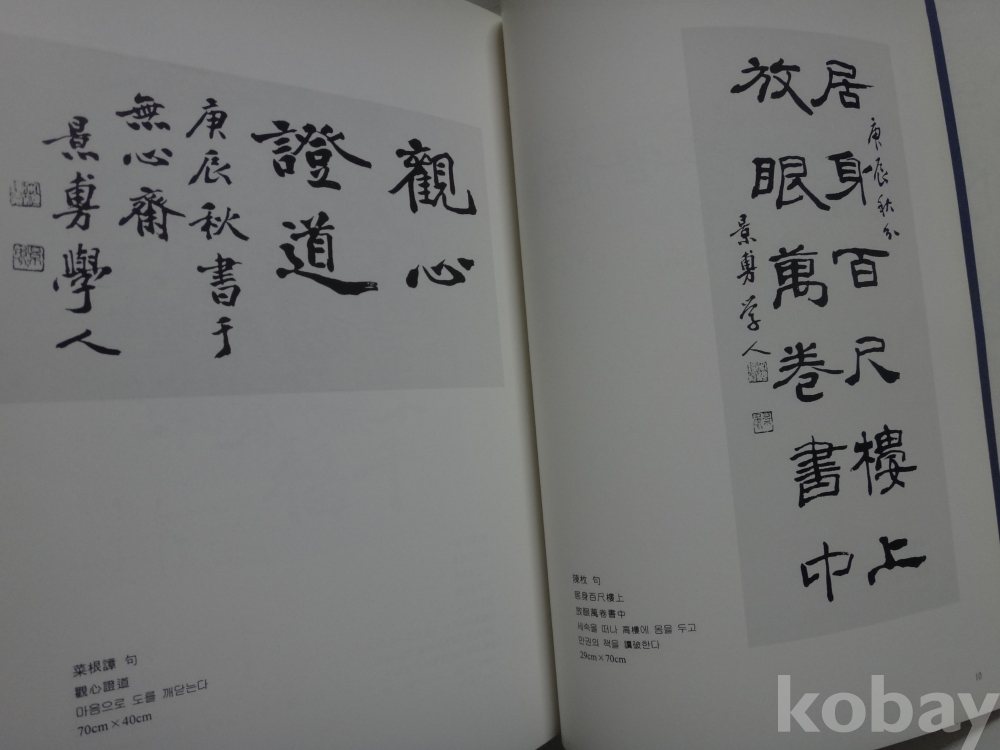 觀心
證道
庚辰秋書于
無心齋
景勇學人
菜根譚 句
觀心證道
마음으로 도를 깨닫는다
70cm×40cm
居身百尺樓上
放眼萬卷書中
庚辰秋分
景勇学人
陳枚 句
居身百尺樓上
放眼萬卷書中
세속을 떠나 高樓에 몸을 두고
만권의 책을 讀破한다
29cm×70cm
10
kobay